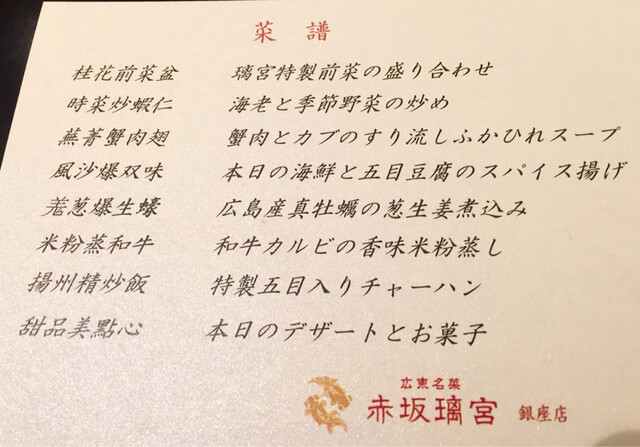 菜譜
桂花前菜盆 璃宮特製前菜の盛り合わせ
時菜炒蝦仁 海老と季節野菜の炒め
蕪菁蟹肉翅 蟹肉とカブのすり流しふかひれスープ
風沙爆双味 本日の海鮮と五目豆腐のスパイス揚げ
羌葱爆生蠔 広島産真牡蠣の葱生姜煮込み
米粉蒸和牛 和牛カルビの香味米粉蒸し
揚州精炒飯 特製五目入りチャーハン
甜品美點心 本日のデザートとお菓子
広東名菜
赤坂璃宮 銀座店